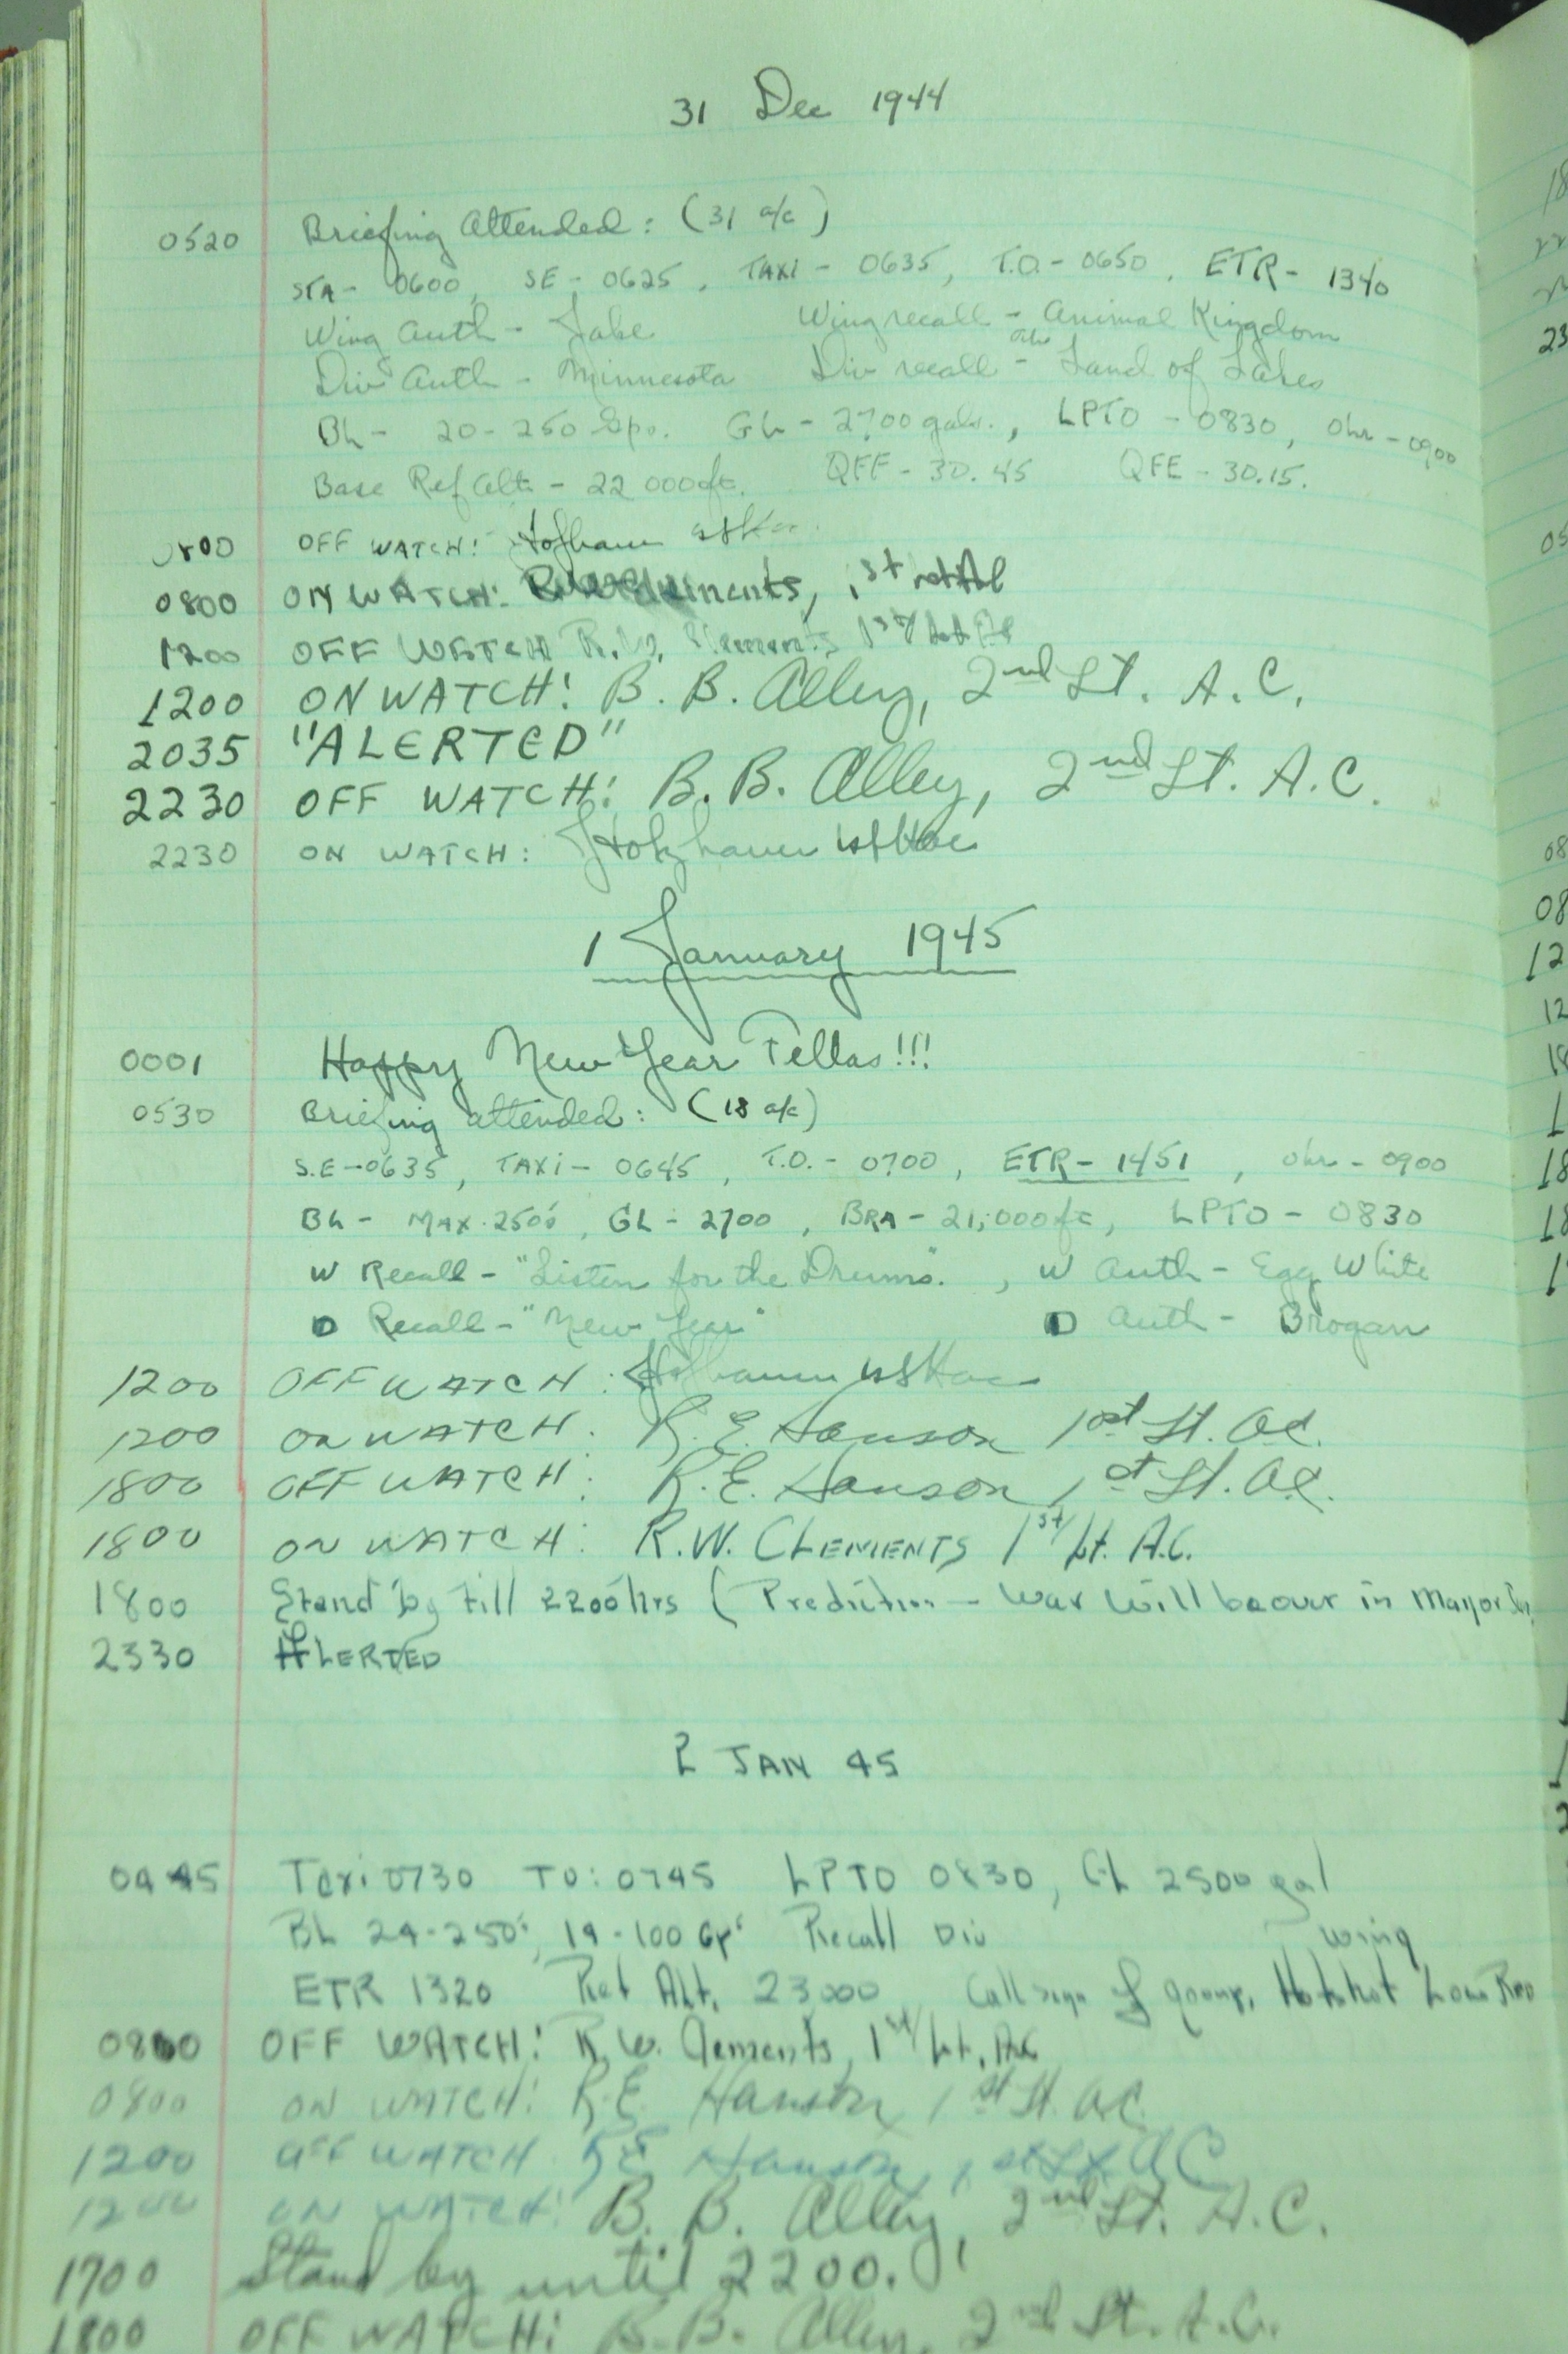 31 Dec 1944
0520 Briefing Attended: (31 a/c)
STA - 0600, SE - 0625, TAXI - 0635, T.O. - 0650, ETR - 1340
Wing Auth - Jake Wing recall - Animal Kingdom
Div Auth - Minnesota Div recall - Land of Lakes
BL - 20-250 Gps. GL - 2700 gals., LPTO - 0830, Ohr - 0900
Base Ref Alt - 22 000 ft. QFF - 30.45 QFE - 30.15.
0800 OFF WATCH:
0800 ON WATCH:
1200 OFF WATCH R.W. Clements 1st
1200 ON WATCH: B. B. Alley, 2nd Lt. A.C.
2035 "ALERTED"
2230 OFF WATCH: B. B. Alley, 2nd Lt. A.C.
2230 ON WATCH:
1 January 1945
0001 Happy New Year Fellas!!!
0530 Briefing attended: (18 a/c)
S.E - 0635, TAXI - 0645, T.O. - 0700, ETR - 1451, Ohr - 0900
BL - MAX. 2500, GL - 2700, BRA - 21,000 ft, LPTO - 0830
W Recall - "Listen for the Drums". , W Auth - Egg White
D Recall - "New Year" D Auth - Brogan
1200 OFF WATCH:
1200 ON WATCH: R. E. Hanson 1st Lt. AC.
1800 OFF WATCH: R. E. Hanson 1st Lt. AC.
1800 ON WATCH: R.W. CLEMENTS 1st/Lt. A.C.
1800 Stand by till 2200 hrs (Prediction - War will be over in May or
2330 ALERTED
2 JAN 45
0445 Taxi 0730 TO: 0745 LPTO 0830, GL 2500 gal
BL 24-250', 14-100 Gp' Recall Div Wing
ETR 1320 Ref Alt. 23000 Call sign of group, Hotshot
0800 OFF WATCH: R.W. Clements, 1st/Lt. AC
0800 ON WATCH: R.E. Hanson 1st Lt. AC
1200 OFF WATCH R E Hanson, 1st Lt AC
1200 ON WATCH: B. B. Alley, 2nd Lt. A.C.
1700 Stand by until 2200.
1800 OFF WATCH: B. B. Alley, 2nd Lt. A.C.